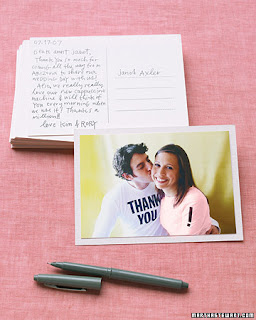 DEAR AUNT JANET,
Thank you so much for
coming all the way from
ARIZONA to share our
WEDDING DAY with us!
Also, we really really
love our new cappuccino
machine & will think of
you every morning when
we use it! Thanks a
million!
love
Janet Axler
THANK
YOU
!
MARTHASTEWART.COM